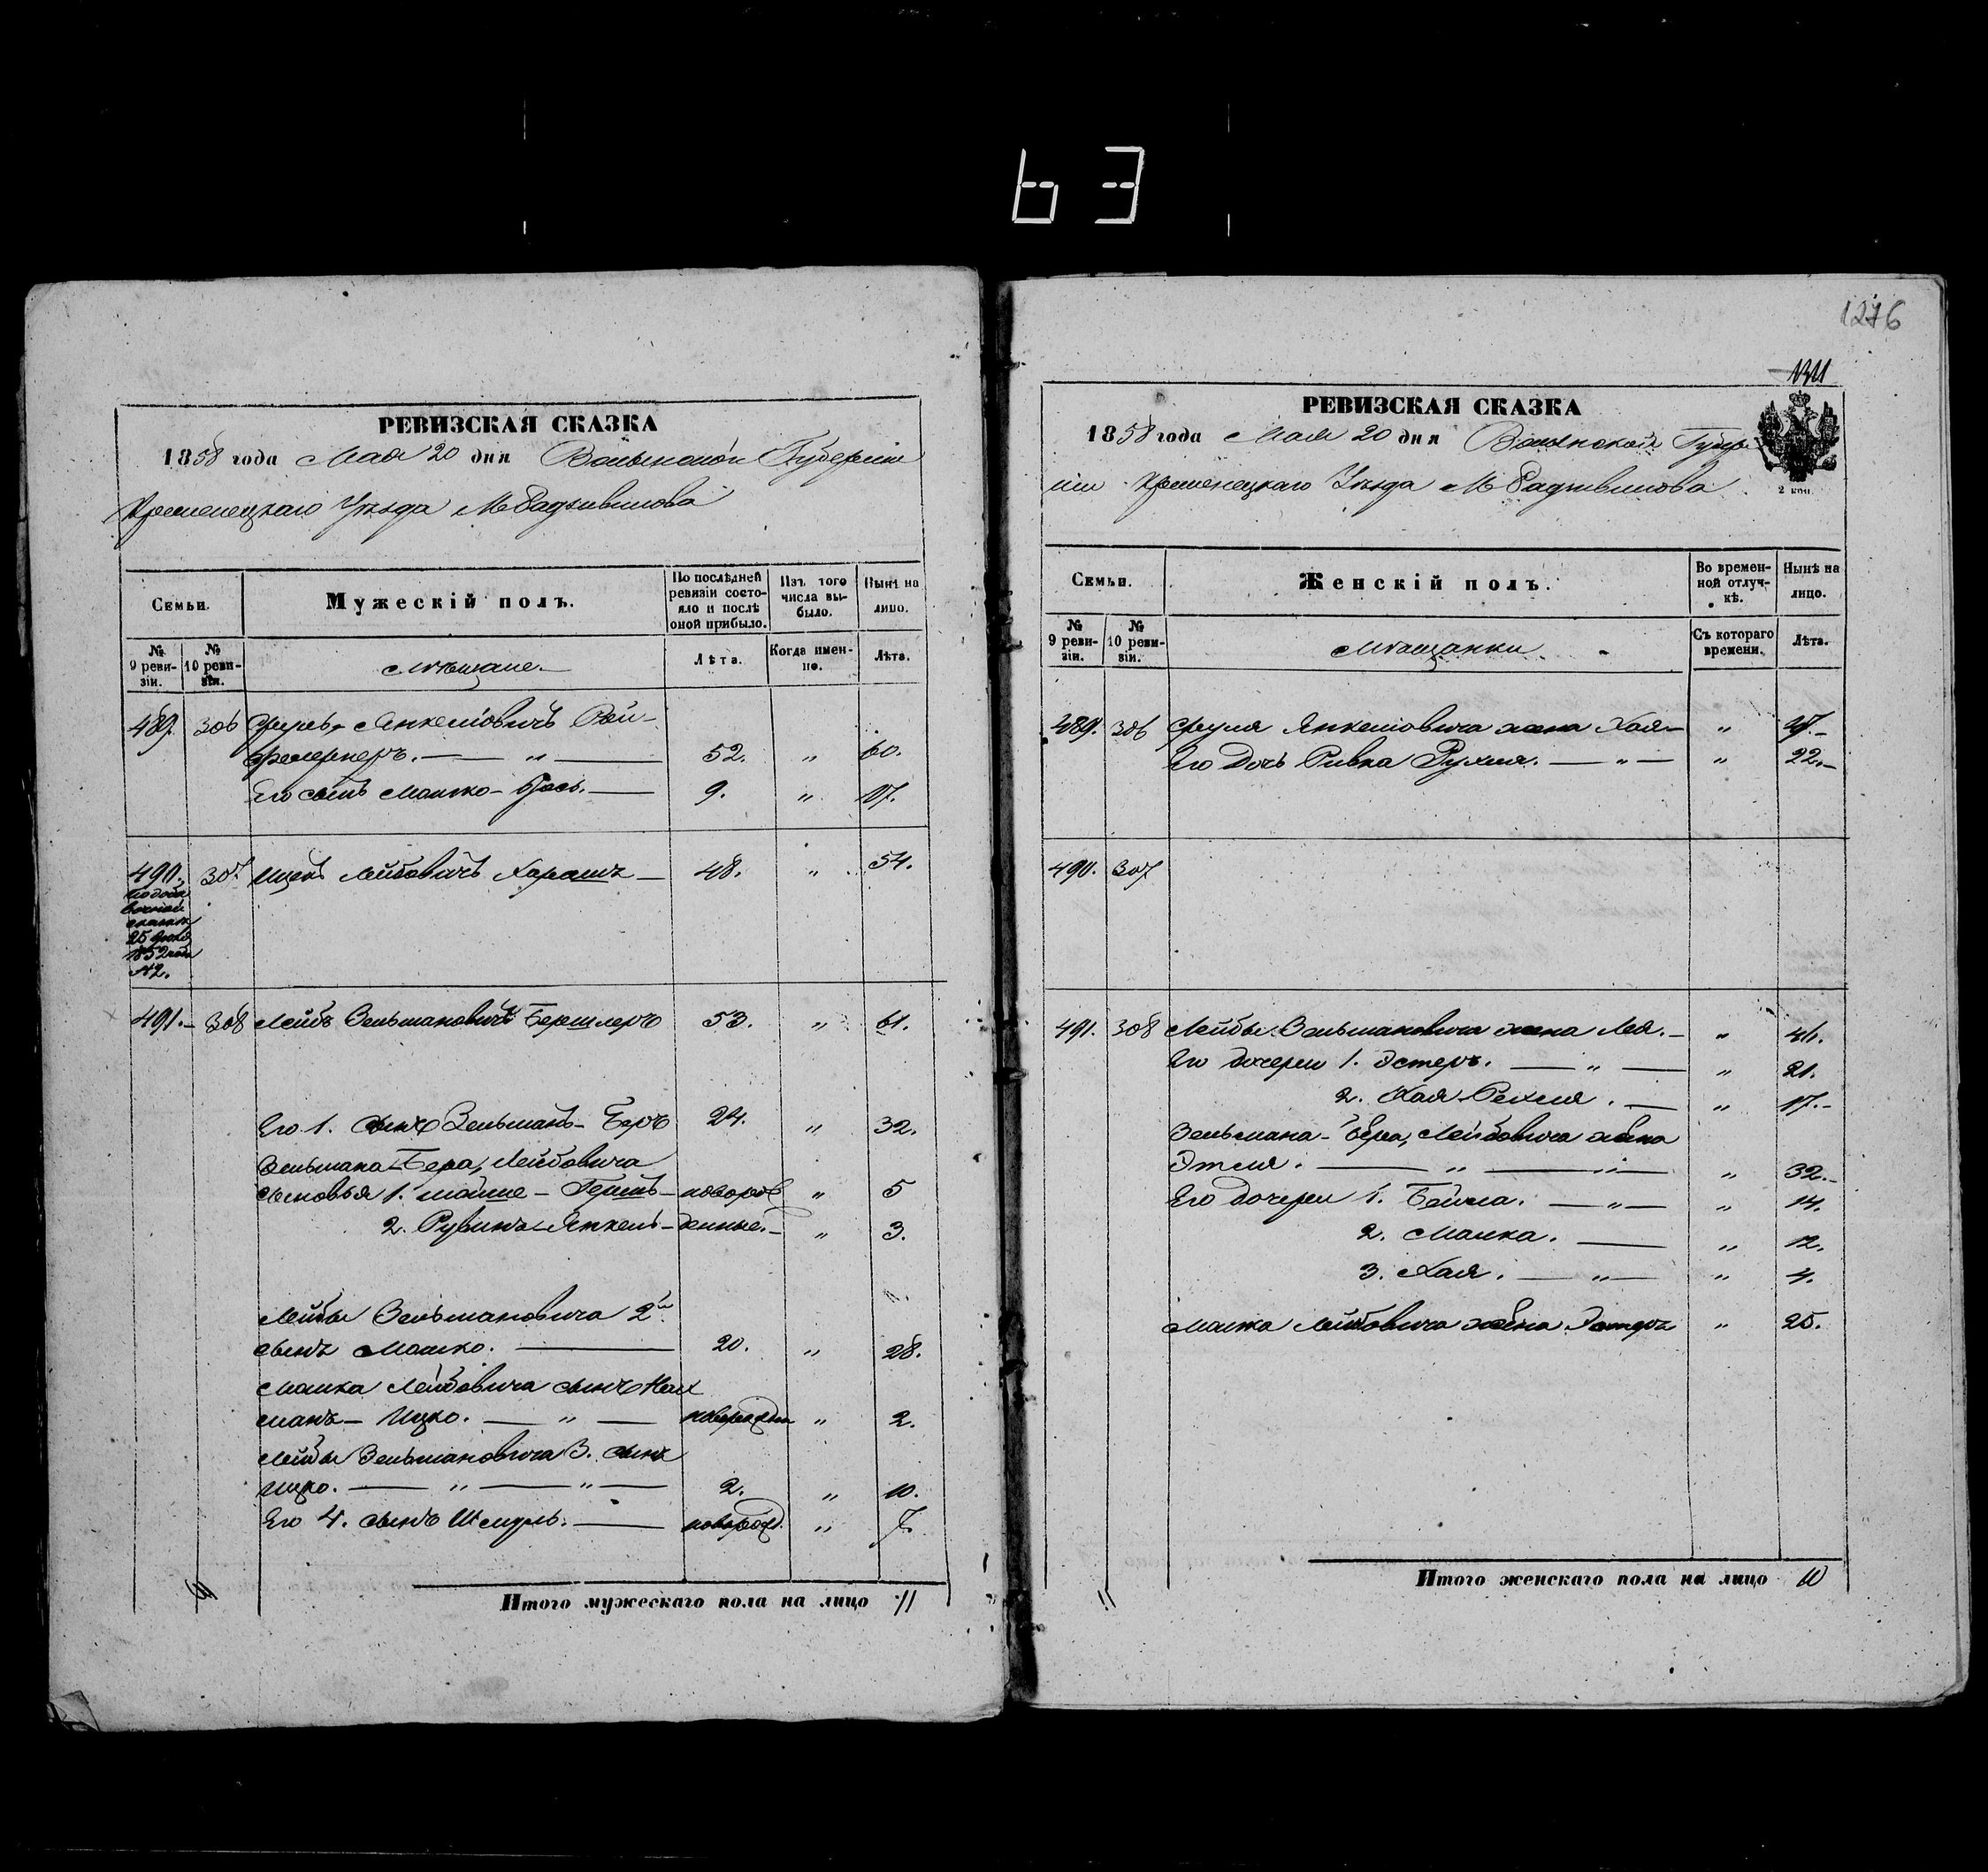 63
РЕВИЗСКАЯ СКАЗКА
1858 года Мая 20 дня Волынской Губернии
Кременецкаго Уезда М Радзивилова
Семьи.
Мужескій полъ.
По послѣдней ревизіи состояло и послѣ оной прибыло.
Изъ того числа выбыло.
Нынѣ на лицо.
№ 9 ревизіи.
№ 10 ревизіи.
Мѣщане.
Лѣта.
Когда именно.
Лѣта.
489. 306 Сруль Янкелiовичъ Рой-
— „ — 52. „ 60.
Его сынъ Мошко - Іось. — 9. „ 17.
490. 307 Ицекъ Лейбовичъ Харашъ — 48. „ 54.
25 1852 года
№2.
491. 308 Лейбъ Зельмановичъ Берилеръ 53. „ 61.
Его 1. сынъ Зельманъ - Беръ 24. „ 32.
Зельмана - Бера, Лейбовича
сыновья 1. - Гершъ - новорож „ 5
2. Рувинъ - Янкель - денные. „ 3.
Лейбы Зельмановича 2й
сынъ Мошко. — 20. „ 28.
Мошка Лейбовича сынъ Нах
манъ - Ицко. — „ — новорожден „ 2.
Лейбы Зельмановича 3. сынъ
Ицко. — „ — „ — 2. „ 10.
Его 4. сынъ Шмуль. — новорожд. „ 7.
Итого мужескаго пола на лицо 11
1276
1311
РЕВИЗСКАЯ СКАЗКА
1858 года Мая 20 дня Волынской Губер-
ніи Кременецкаго Уезда М Радзивилова
2 коп.
Семьи.
Женскій полъ.
Во временной отлучкѣ.
Нынѣ на лицо.
№ 9 ревизіи.
№ 10 ревизіи.
Мѣщанки
Съ котораго времени.
Лѣта.
489. 306 Сруля Янкелiовича жена Хая — „
Его дочь Ривка Рухля. — „ — „ 22.
490. 307
491. 308 Лейбы Зельмановича жена Лея. — „ 46.
Его дочери 1. Эстеръ. — „ — „ 21.
2. Хая - Рехля. — „ 17.
Зельмана - Бера, Лейбовича жена
Этля. — „ — „ — „ 32.
Его дочери 1. Бейла. — „ — „ 14.
2. Малка. — „ 12.
3. Хая. — „ — „ 4.
Мошка Лейбовича жена Эстеръ „ 25.
Итого женскаго пола на лицо 10